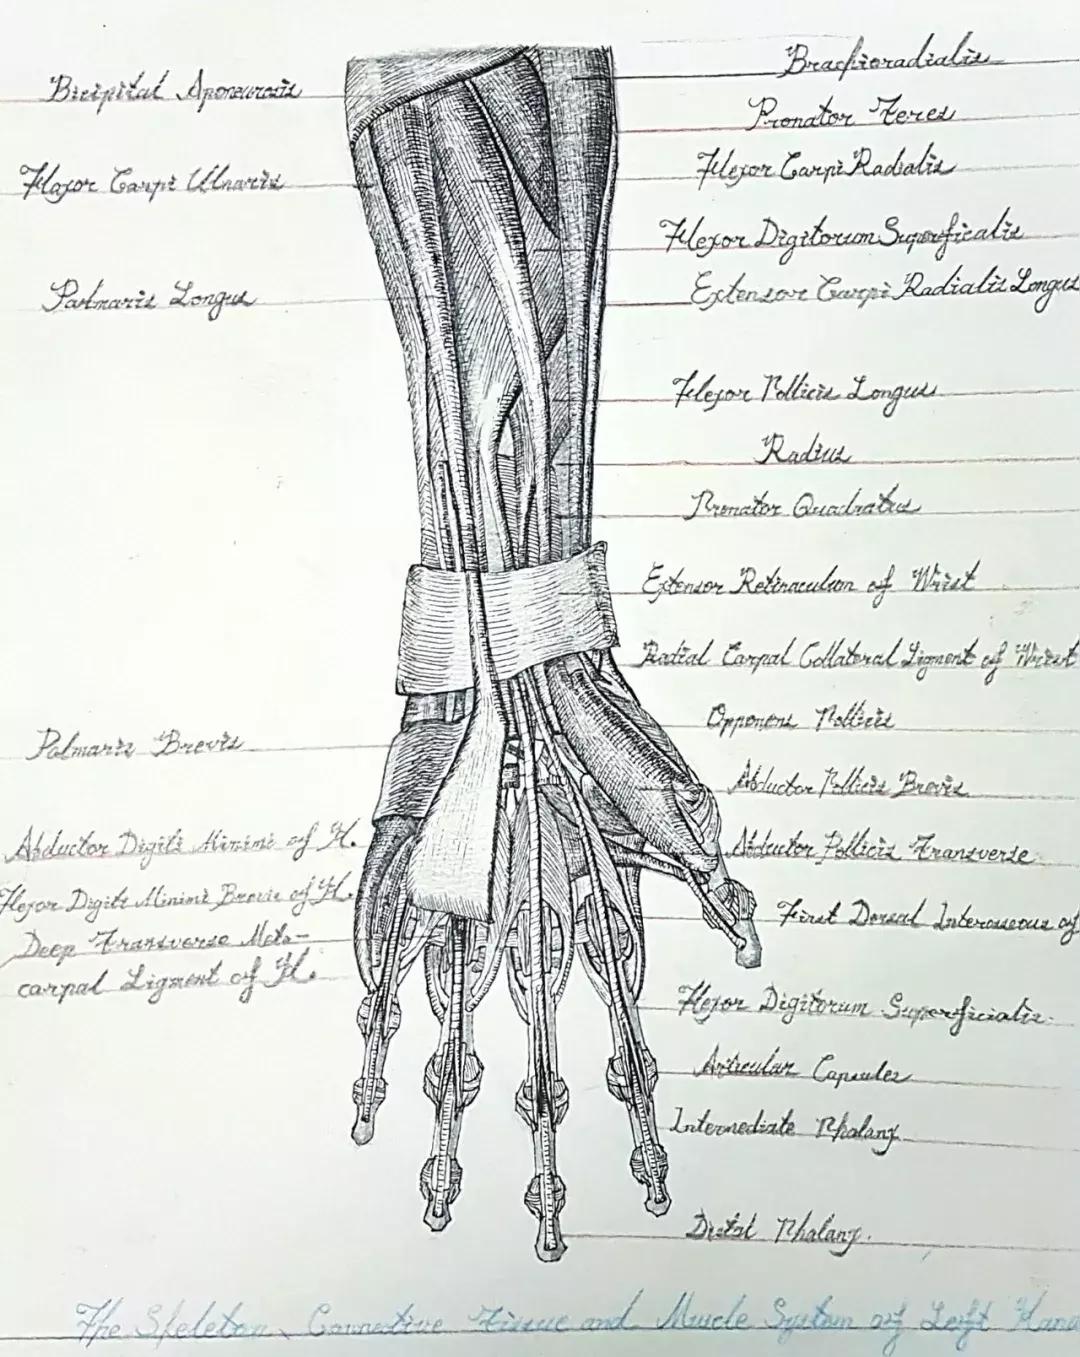 Bicipital Aponeurosis
Flaxor Carpi Ulnaris
Palmaris Longus
Palmaris Brevis
Abductor Digiti Minimi of H.
Flexor Digiti Minimi Brevis of H.
Deep Transverse Meta-
carpal Ligment of H.
Brachioradialis
Pronator Teres
Flexor Carpi Radialis
Flexor Digitorum Superficalis
Extensor Carpi Radialis Longus
Flexor Pollicis Longus
Radius
Pronator Quadratus
Extensor Retinaculum of Wrist
Radial Carpal Collateral Ligment of Wrist
Opponens Pollicis
Abductor Pollicis Brevis
Abductor Pollicis Transverse
First Dorsal Interosseous of
Flexor Digitorum Superficialis.
Articular Capsules
Intermediate Phalanx
Distal Phalanx.
The Skeleton、Connective Tissue and Muscle System of Left Hand